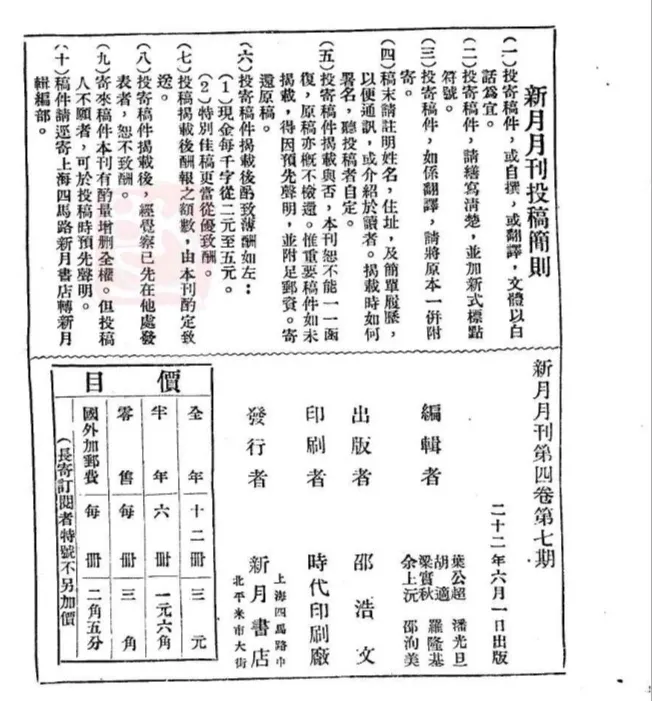 新月月刊投稿簡則
(一)投寄稿件,或自撰,或翻譯,文體以白
話爲宜。
(二)投寄稿件,請繕寫清楚,並加新式標點
符號。
(三)投寄稿件,如係翻譯,請將原本一併附
寄。
(四)稿末請註明姓名,住址,及簡單履歷,
以便通訊,或介紹於讀者。揭載時如何
署名,聽投稿者自定。
(五)投寄稿件揭載與否,本刊恕不能一一函
復,原稿亦概不檢還。惟重要稿件如未
揭載,得因預先聲明,並附足郵資。寄
還原稿。
(六)投寄稿件揭載後酌致薄酬如左:
(1)現金每千字從二元至五元。
(2)特別佳稿更當從優致酬。
(七)投稿揭載後酬報之額數,由本刊酌定致
送。
(八)投寄稿件揭載後,經覺察已先在他處發
表者,恕不致酬。
(九)寄來稿件本刊有酌量增刪全權。但投稿
人不願者,可於投稿時預先聲明。
(十)稿件請逕寄上海四馬路新月書店轉新月
輯編部。
新月月刊第四卷第七期
二十二年六月一日出版
編輯者
葉公超 潘光旦
胡適 羅隆基
梁實秋 邵洵美
余上沅
出版者 邵浩文
印刷者 時代印刷廠
發行者 新月書店
上海四馬路中
北平米市大街
價目
全年 十二冊 三元
半年 六冊 一元六角
零售 每冊 三角
國外加郵費 每冊 二角五分
(長寄訂閱者特號不另加價)